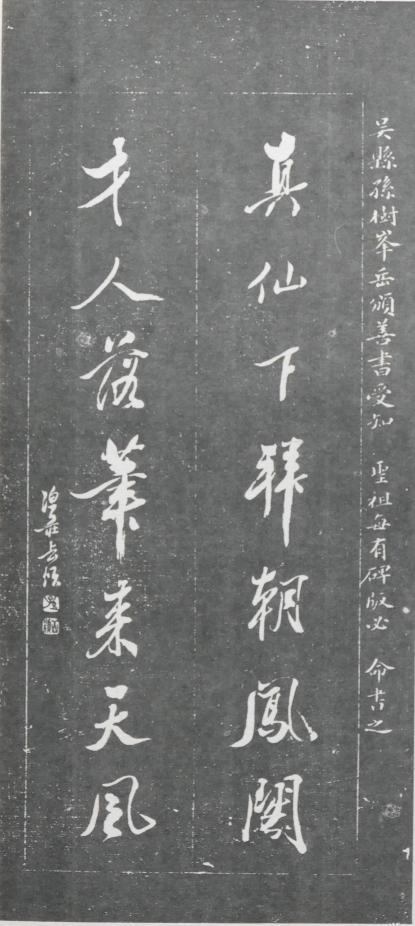 吴縣孫樹峯岳頒善書受知 聖祖每有碑版必 命書之
真仙下拜朝鳳闕
才人落筆来天風
岳頒